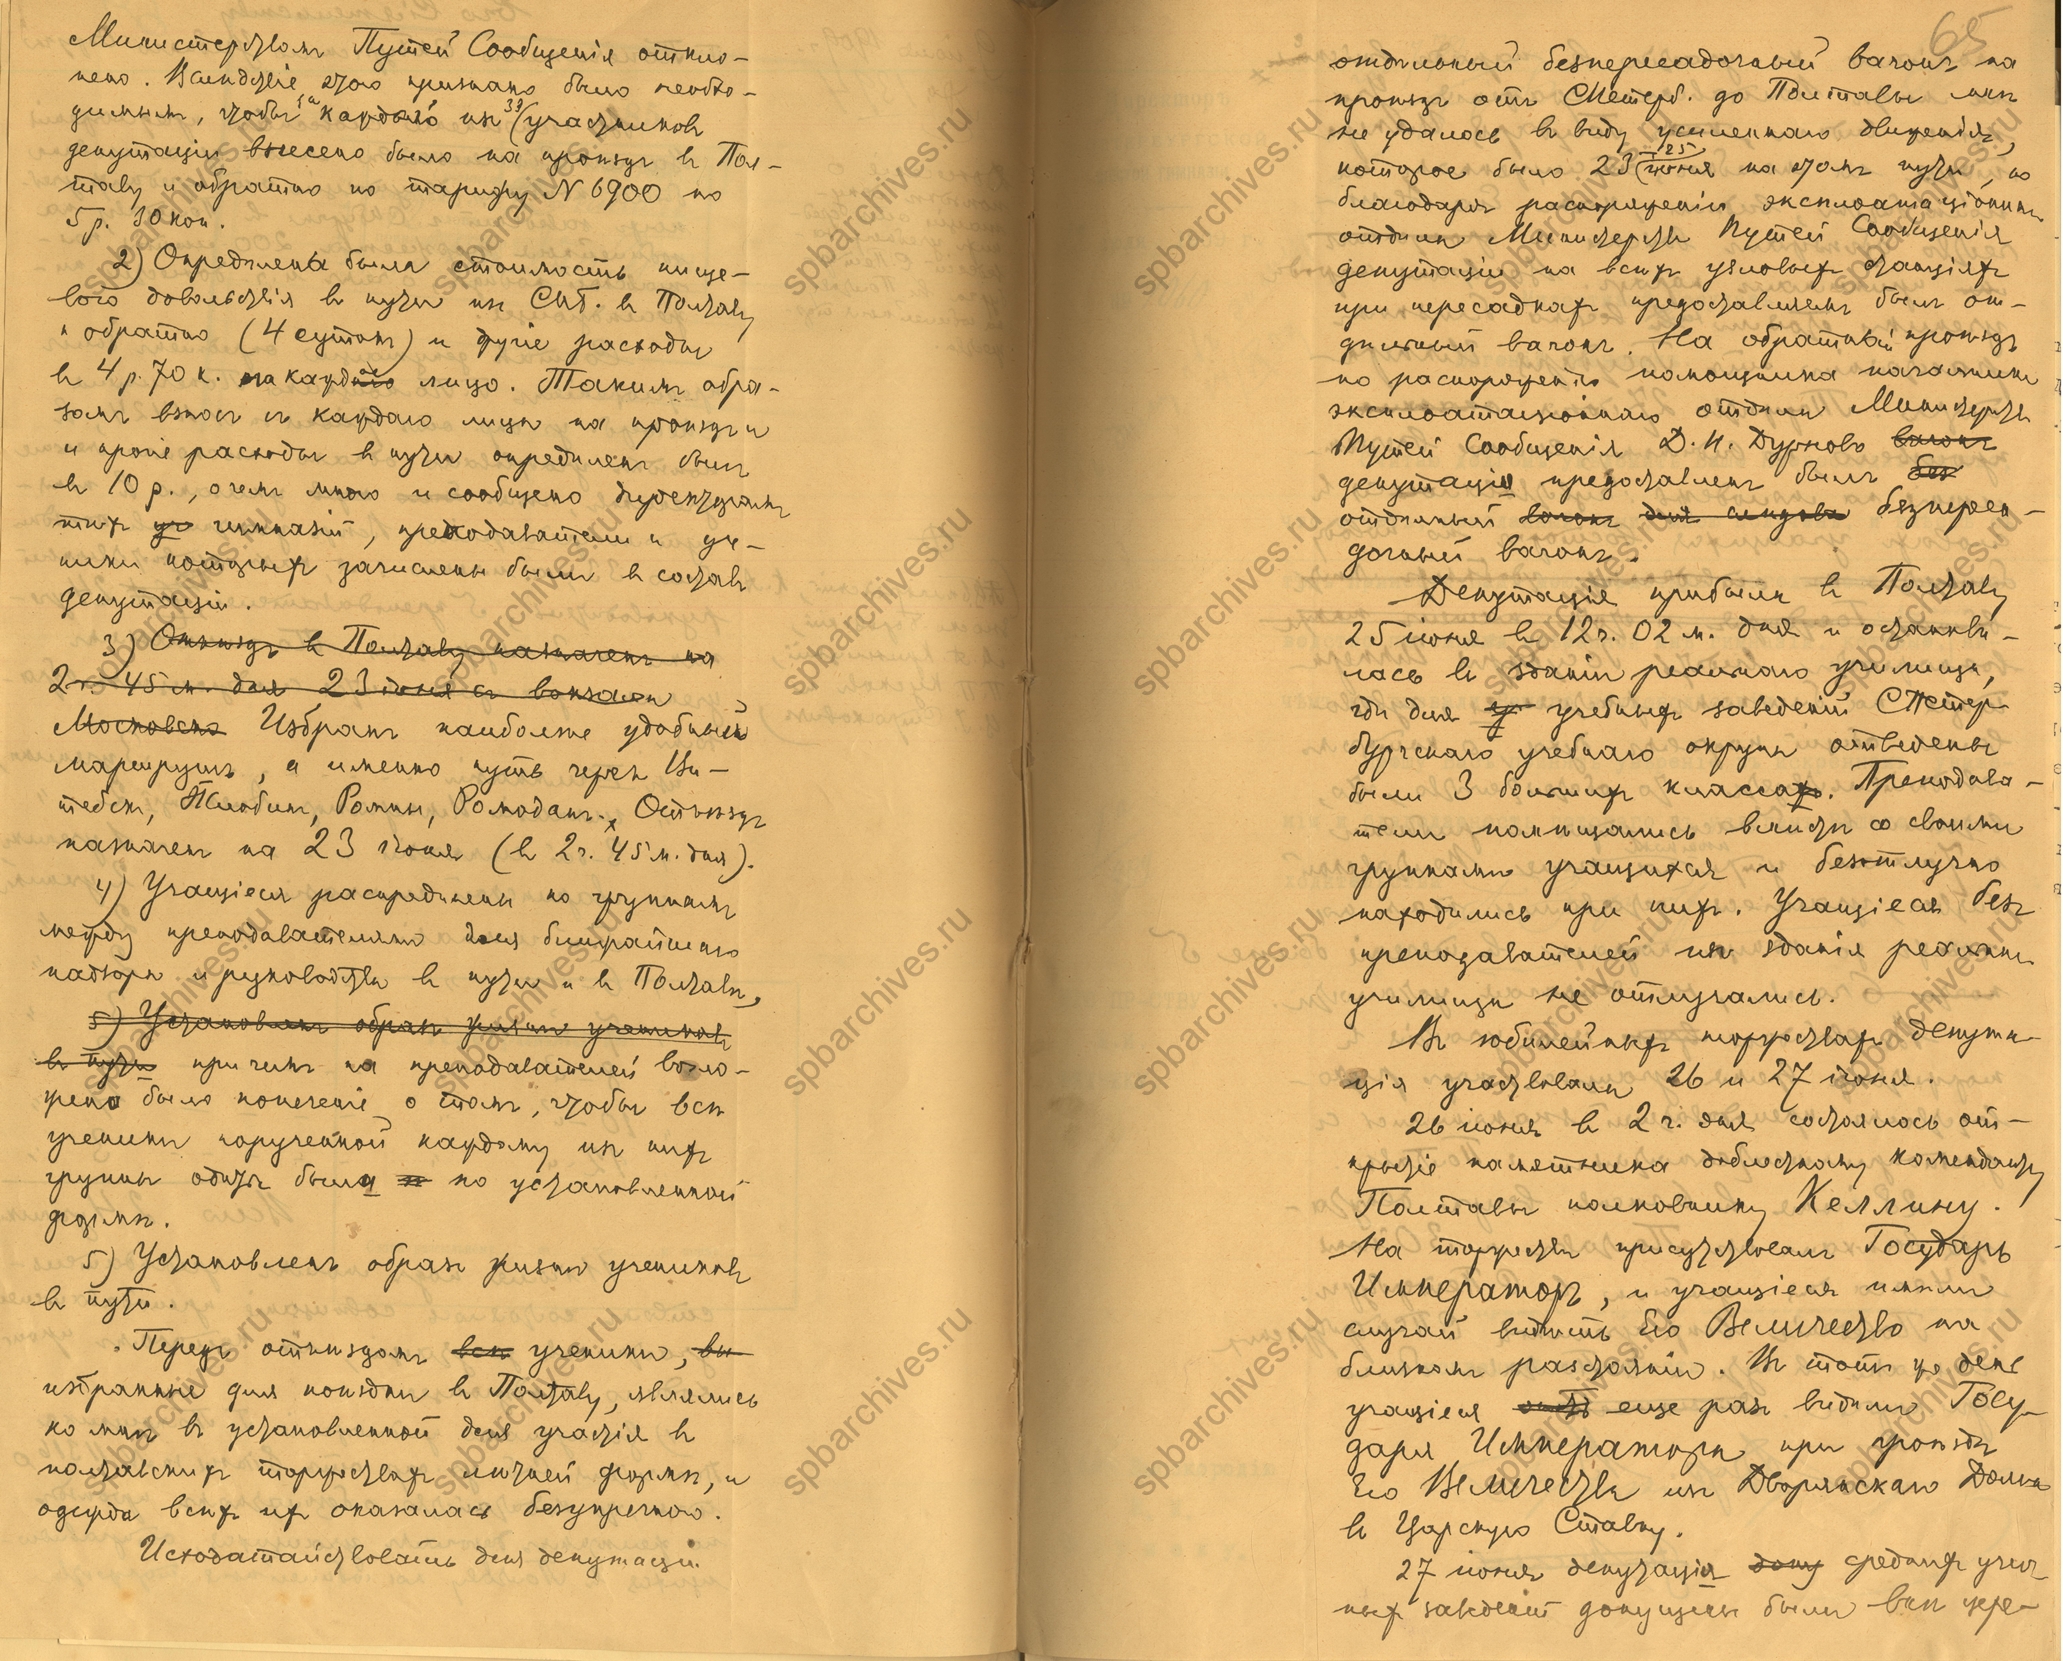 Министерствомъ Путей Сообщенія откло-
нено. Вслѣдствіе этого признано было необхо-
димымъ, чтобы съ каждаго изъ 39 (участниковъ
депутаціи внесено было на проѣздъ въ Пол-
таву и обратно по тарифу N 6900 по
5 р. 30 коп.
2) Опредѣлена была стоимость пище-
вого довольствія въ пути изъ СПб. въ Полтаву
и обратно (4 сутокъ) и другіе расходы
въ 4 р. 70 к. на каждое лицо. Такимъ обра-
зомъ взносъ съ каждаго лица на проѣздъ и
и прочіе расходы въ пути опредѣленъ былъ
въ 10 р., о чемъ мною и сообщено директорамъ
тѣхъ уч гимназій, преподаватели и уче-
ники которыхъ зачислены были въ составъ
депутаціи.
3) Отъѣздъ въ Полтаву назначенъ на
2 ч. 45 м. дня 23 іюня съ вокзала
Московско Избранъ наиболѣе удобный
маршрутъ, а именно путь черезъ Ви-
тебскъ, Жлобинъ, Ромны, Ромоданъ. Отъѣздъ
назначенъ на 23 іюня (въ 2 ч. 45 м. дня).
4) Учащіеся распредѣлены по группамъ
между преподавателями для ближайшаго
надзора и руководства въ пути и въ Полтавѣ,
5) Установленъ образъ жизни учениковъ
въ пути при чемъ на преподавателей возло-
жено было попеченіе о томъ, чтобы всѣ
ученики порученной каждому изъ нихъ
группы одѣты были по установленной
формѣ.
5) Установленъ образъ жизни учениковъ
въ пути.
Передъ отъѣздомъ всѣ ученики, вы
избранные для поѣздки въ Полтаву, являлись
ко мнѣ въ установленной для участія въ
полтавскихъ торжествахъ лѣтней формѣ, и
одежда всѣхъ ихъ оказалась безупречною.
Исходатайствовать для депутаціи
65
отдѣльный безпересадочный вагонъ на
проѣздъ отъ СПетерб. до Полтавы мнѣ
не удалось въ виду усиленнаго движенія,
которое было 23 (іюня на этомъ пути, но
- 25
благодаря распоряженію эксплоатаціоннаго
отдѣла Министерства Путей Сообщенія
депутаціи на всѣхъ узловыхъ станціяхъ
при пересадкахъ предоставляемъ былъ от-
дѣльный вагонъ. На обратный проѣздъ
по распоряженію помощника начальника
эксплоатаціоннаго отдѣла Министерства
Путей Сообщенія Д. Н. Дурново вагонъ
депутаціи предоставленъ былъ без
отдѣльный вагонъ для слѣдова безпереса-
дочный вагонъ.
Депутація прибыла въ Полтаву
25 іюня въ 12 ч. 02 м. дня и останови-
лась въ зданіи реальнаго училища,
гдѣ для у учебныхъ заведеній СПетер-
бургскаго учебнаго округа отведены
были 3 большихъ класса. Преподава-
тели помѣщались вмѣстѣ со своими
группами учащихся и безотлучно
находились при нихъ. Учащіеся безъ
преподавателей изъ зданія реальнаго
училища не отлучались.
Въ юбилейныхъ торжествахъ депута-
ція участвовала 26 и 27 іюня.
26 іюня въ 2 ч. дня состоялось от-
крытіе памятника доблестному коменданту
Полтавы полковнику Келлину.
На торжествѣ присутствовалъ Государь
Императоръ, и учащіеся имѣли
случай видѣть Его Величество на
близкомъ разстояніи. Въ тотъ же день
учащіеся опять еще разъ видѣли Госу-
даря Императора при проѣздѣ
Его Величества изъ Дворянскаго Дома
въ Царскую Ставку.
27 іюня депутація среднихъ учеб
ныхъ заведеній допущены были всѣ